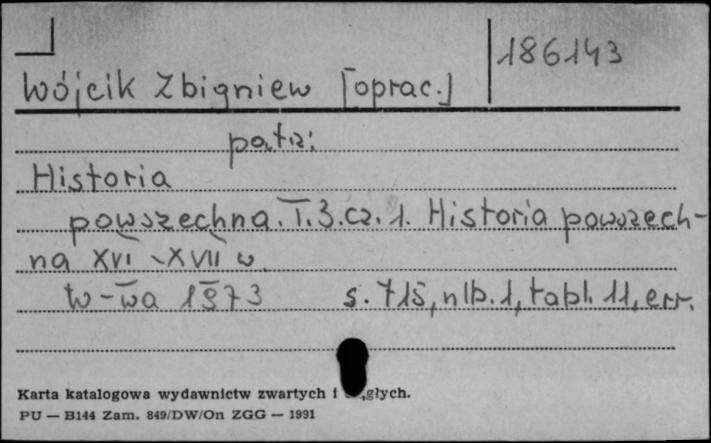 186143
Wójcik Zbigniew [oprac.]
patrz:
Historia
powszechna. T.3.cz. 1. Historia powszech-
na XVI - XVII w.
W-wa 1973 s. 715, nlb. 1, tabl. 11, err.
Karta katalogowa wydawnictw zwartych i
PU — B144 Zam. 849/DW/On ZGG — 1991